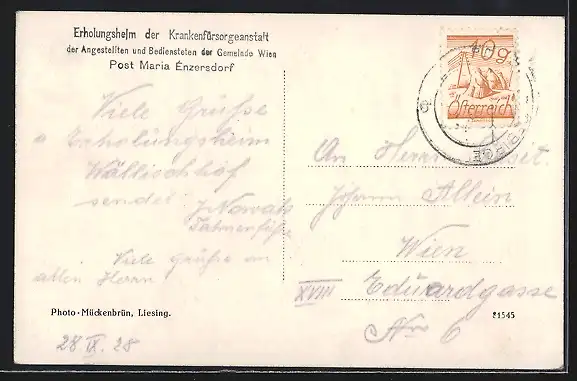 Erholungsheim der Krankenfürsorgeanstalt
der Angestellten und Bediensteten der Gemeinde Wien
Post Maria Enzersdorf
10g
Österreich
Viele Grüße
Erholungsheim
Wällischhof
sendet
J. Nowak
Viele Grüße an
allen Herrn
Photo-Mückenbrün, Liesing.
28 IX. 28
An Herrn
Johann Allein
Wien
XVIII Eduardgasse
Nr 6
21545